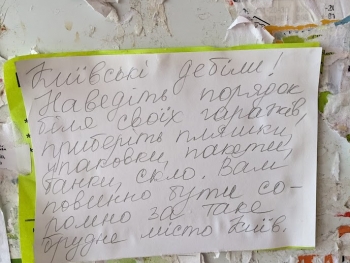 Київські дебіли!
Наведіть порядок
біля своїх гаражів,
приберіть пляшки,
упаковки, пакети,
банки, скло. Вам
повинно бути со-
ромно за таке
брудне місто Київ.